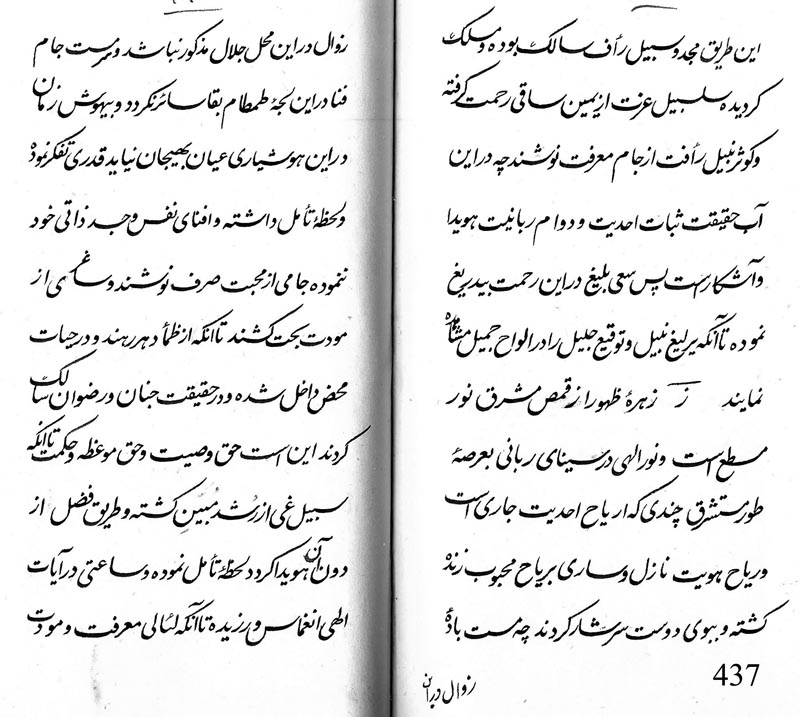 این طریق مجد و سبیل رأف سالک بوده و مسلک
کردیده سلسبیل عزت از یمین ساقی رحمت گرفته
و کوثر نبیل رأفت از جام معرفت نوشند چه در این
آب حقیقت ثبات احدیت و دوام ربانیت هویدا
و آشکار است پس سعی بلیغ در این رحمت بیدریغ
نموده تا آنکه یرلیغ نبیل و توقیع جلیل را در الواح جمیل مشاهده
نمایند ز زهرهٔ ظهور از قمص مشرق نور
مسطع است و نور الهی در سینای ربانی بعرصهٔ
طور مستشرق چندی که اریاح احدیت جاری است
و ریاح هویت نازل و ساری بریاح محبوب زنده
کشته و ببوی دوست سرشار کردند چه مست بادهٔ
زوال در این
437
زوال در این محل جلال مذکور نباشد و سرمست جام
فنا در این لجهٔ طمطام بقا سائر نکردد و بیهوش زمان
در این هوشیاری عیان بهیجان نیاید قدری تفکر نموده
و لحظهٔ تأمل داشته و افنای نفس و جد ذاتی خود
ننموده جامی از محبت صرف نوشند و ساغری از
مودت بحت کشند تا آنکه از ظمأ دهر رهند و در حیات
محض داخل شده و در حقیقت جنان و رضوان سالک
کردند این است حق وصیت و حق موعظه و حکمت تا آنکه
سبیل غی از رشد مبین کشته و طریق فضل از
دون آن هویدا کردد لحظهٔ تأمل نموده و ساعتی در آیات
الهی انغماس ورزیده تا آنکه لئالی معرفت و مودت